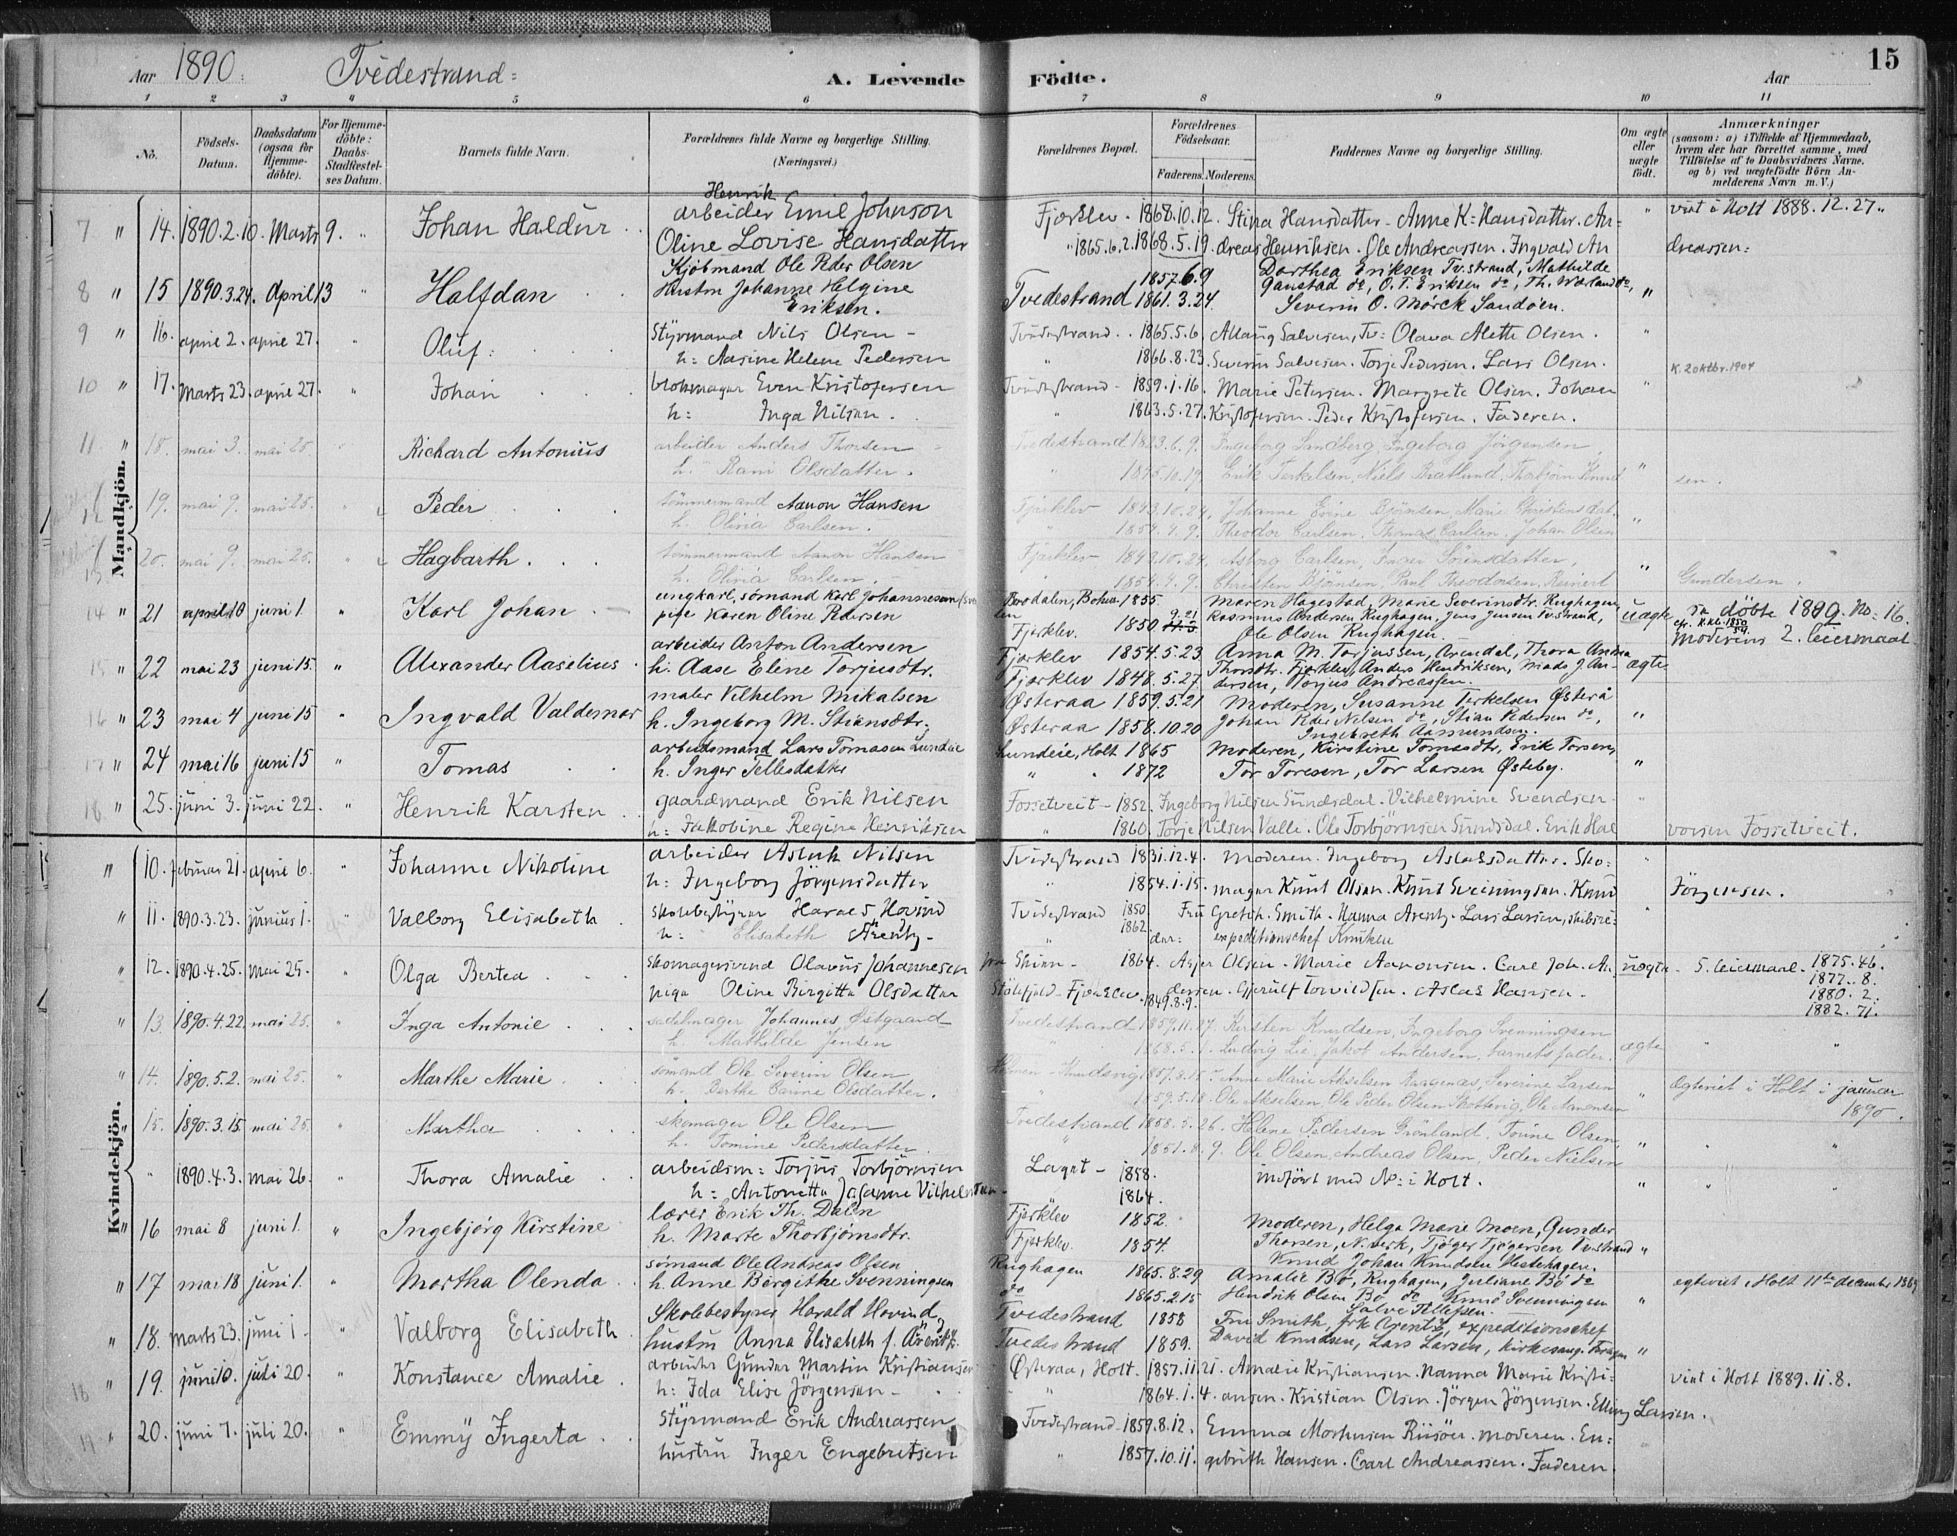 Aar 1890. Tvedestrand: A. Levende Födte. Aar 15
1 2 3 4 5 6 7 8 9 10 11
No. Födsels-Datum. Daabsdatum (ogsaa for Hjemmedöbte). For Hjemmedöbte: Daabs-Stadfæstelses Datum. Barnets fulde Navn. Forældrenes fulde Navne og borgerlige Stilling. (Næringsvei.) Forældrenes Bopæl. Forældrenes Födselsaar. Faderens. Moderens. Faddernes Navne og borgerlige Stilling. Om ægte eller uægte födt. Anmærkninger (saasom: a) i Tilfælde af Hjemmedaab, hvem der har forrettet samme, med Tilföielse af to Daabsvidners Navne, og b) ved uægtefödte Börn Anmelderens Navn m. V.)
Mandkjön.
Henrik
7 " 14. 1890.2.10. Marts 9. " Johan Haldur arbeider Emil Johnson Fjærklev. 1868.10.12. Stina Hansdatter. Anne K: Hansdatter. An- " viet i Holt 1888.12.27.
Oline Lovise Hansdatter "1865.6.2. 1868.5.19. dreas Henriksen. Ole Andreassen. Ingvald An dreassen:
Kjöbmand Ole Peder Olsen 1857.6.9 Dorthea Eriksen Tv.strand, Mathilde
8 " 15 1890.3.24. April 13 " Halfdan Hustru Johanne Helgine Tvedestrand 1861.3.24. Ganstad do, O. T. Eriksen do, Th. Warland do, "
Eriksen. Severin O. Mörck Sandöen.
9 " 16. april 2. april 27. " Oluf: Styrmand Nils Olsen - Tvedestrand. 1865.5.6. Salvesen, Tv: Olava Alette Olsen. "
h: Aasine Helene Pedersen " 1866.8.23. Severin Salvesen. Torje Pedersen. Lars Olsen.
10 " 17. Marts 23. april 27. " Johan blokmager Even Kristofersen Tvedestrand - 1859.1.16. Marie Petersen. Margrete Olsen. Johan " K. 2 oktbr. 1904
h: Inga Nilsen. " 1863.5.27. Kristofersen. Peder Kristofersen. Faderen.
11 " 18. mai 3. mai 25. " Richard Antonius arbeider Anders Thorsen Tvedestrand Ingeborg Sandberg, Ingeborg Jörgensen,
h. Rani Olsdatter. " Erik Terkelsen, Niels Thorbjörn Knud " sen.
12 19. mai 9. mai 25. " Peder tömmermand Aanon Hansen Fjærklev Johanne Bjönsen, Marie Christensdat.
h. Olivia Carlsen. " 1854.4.9. Theodor Carlsen, Thomas Carlsen Johan Olsen "
13. 20. mai 9. mai 25. Hagbarth. tömmermand Aanon Hansen Fjærklev Carlsen, Inger Sörensdatter,
h. Olivia Carlsen. " 1854.4.9. Christen Bjönsen, Paul Theodorsen, Reinert " Gundersen.
14 " 21 april 10 juni 1. " Karl Johan ungkarl, sömand Karl Johannesen Brodalen, 1855 Maren Hagestad, Marie Severinsdtr. Rughagen, uægte döbte 1889. No. 16.
pige Karen Oline Pedersen Fjærklev. 1850 9.21 Rasmus Andersen Rughagen, Jens Jensen Tv.strand, Ole Olsen Rughagen. moderens 2. leiermaal
15 " 22 mai 23 juni 15. " Alexander Aaselius arbeider Anton Andersen Fjærklev 1854.5.23. Anna M. Torjussen, Arendal, Thora Anna ægte
h. Aase Elene Torjusdtr. Fjærklev 1848.5.27 Thorsdtr. Fjærklev, Anders Hendriksen, Mads J. Andersen, Torjus Andreassen.
16 " 23 mai 4 juni 15 " Ingvald Valdemar maler Vilhelm Mikalsen Østeraa 1859.5.21 Moderen, Susanne Terkelsen Østerå
h. Ingeborg M. Stiansdtr. Østeraa 1858.10.20 Johan Peder Nielsen do, Stian Pedersen do, Ingebreth Aamundsen. "
17 " 24 mai 16 juni 15 " Tomas arbeidsmand Lars Tomasen Lundeie Lundeie, Holt 1865 Moderen, Kirstine Tomasdtr, Erik Torsen,
h. Inger Tellefsdatter " 1872 Tor Toresen, Tor Larsen Østeby. "
18 25. juni 3. juni 22. " Henrik Karsten gaardmand Erik Nilsen Fossetveit - 1852. Ingeborg Nilsen Sundsdal. Vilhelmine Svendsen. "
h: Jakobine Regine Henriksen " 1860. Torje Nilsen Valle. Ole Torbjörnsen Sundsdal. Erik Hal vorsen Fossetveit.
Kvindekjön.
" 10. februar 21. april 6. " Johanne Nikoline arbeider Aslak Nilsen Tvedestrand 1831.12.4. Moderen. Ingeborg Aslaksdatter. Sko: "
h: Ingeborg Jörgensdatter " 1854.1.15. mager Knut Olsen. Knut Sveiningsen. Knud Jörgensen.
" 11. 1890.3.23. junius 1. " Valborg Elisabeth skolebestyrer Harald Hovind Tvedestrand 1850. Fru Smith. Hanna Arentz. Lars Larsen, skibsre:
h: Elisabeth Arentz - " 1862 der: expeditionschef Knutsen
" 12. 1890.4.25. Mai 25. " Olga Bertea skomagersvend Olavus Johannesen fra Skien - 1864. Olsen. Marie Aanonsen. Carl Joh. An uægte 5. leiermaal. 1875.46.
pige Oline Birgitte Olsdatter Fjærklev 1849.8.9. dersen. Gjerulf Torvildsen. Aslak Hansen. 1877.8.
1880.2.
1882.71.
" 13. 1890.4.22. mai 25. " Inga Antonie sadelmager Johannes Østgaard Tvedestrand 1857.11.27. Kirsten Knudsen, Ingeborg Svenningsen
h. Mathilde Jensen 1868.5.1. Ludvig Lie, Jakob Andersen, barnets fader. ægte " "
" 14. 1890.5.2. mai 25. " Marthe Marie sömand Ole Severin Olsen Anne Marie Akselsen Severine Larsen Ægteviet i Holt i januar
h. Berthe Olsdatter. Ole Akselsen, Ole Peder Olsen Ole Aanonsen " 1890.
15. 1890.3.15. mai 25. " Martha skomager Ole Olsen Tvedestrand 1858.5.26. Helene Pedersen Grönland, Tomine Olsen,
h. Tomine Pedersdatter. " 1851.8.9. Ole Olsen, Andreas Olsen, Peder Nielsen " " "
" 1890.4.3. mai 26. " Thora Amalie arbeidsm: Torjus Torbjörnsen Laget - 1858. indfört med No: i Holt. " " "
h: Antonette Vilhelmsen. 1864.
" 16 mai 8 juni 1. " Ingebjörg Kirstine lærer Erik Th. Dalen Fjærklev 1852. Moderen, Helga Marie Moen, Gunder
h. Marte Thorbjörnsdtr. Fjærklev. 1854. Thorsen, N.verk, Tjöger Tjögersen Tv.strand " Knud Johan Knudsen Hestehagen.
" 17 mai 18 juni 1. " Martha Olenda sömand Ole Andreas Olsen Rughagen 1865.8.29 Amalie Bo, Rughagen, Juliane Bo do ægteviet i Holt 11te december
h. Anne Bergithe Svenningsen do 1865.2.15 Hendrik Olsen Bo do Knud Svenningsen " Salve Tellefsen.
" 18. marts 23. juni 1. " Valborg Elisabeth. Skolebestyrer Harald Hovind Tvedestrand 1858 Fru Smith, frk Arentz, expeditionschef
hustru Anna Elisabeth f. Arentz. Tvedestrand 1859. David Knudsen, Lars Larsen, kirkesang. "
18 " 19. juni 10. juli 20. " Konstance Amalie arbeider Gunder Martin Kristiansen Østeraa, Holt. 1857.11.21. Amalie Kristiansen. Nanna Marie Kristi: viet i Holt 1889.11.8.
h: Ida Elise Jörgensen - " 1864.1.4. ansen. Kristian Olsen. Jörgen Jörgensen. Elling Larsen.
19 " 20. juni 7. juli 20. " Emmy Ingerta Styrmand Erik Andreassen Tvedestrand - 1859.8.12. Emma Mortensen Riisöer. Moderen. En: "
hustru Inger Engebretsen " 1857.10.11. gebrith Hansen. Carl Andreassen. Faderen.